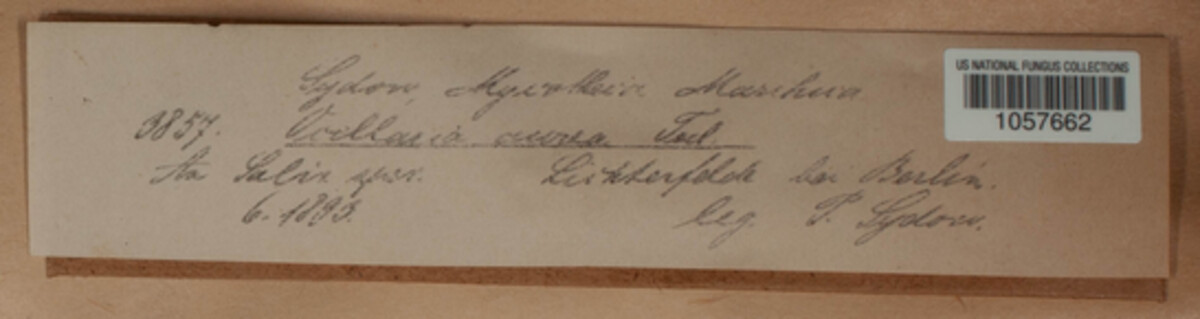 US NATIONAL FUNGUS COLLECTIONS
1057662
Sydow, Mycotheca Marchica
3857. Ocellaria aurea Tul.
An Salix spec. Lichterfelde bei Berlin.
6. 1893. leg. P. Sydow.